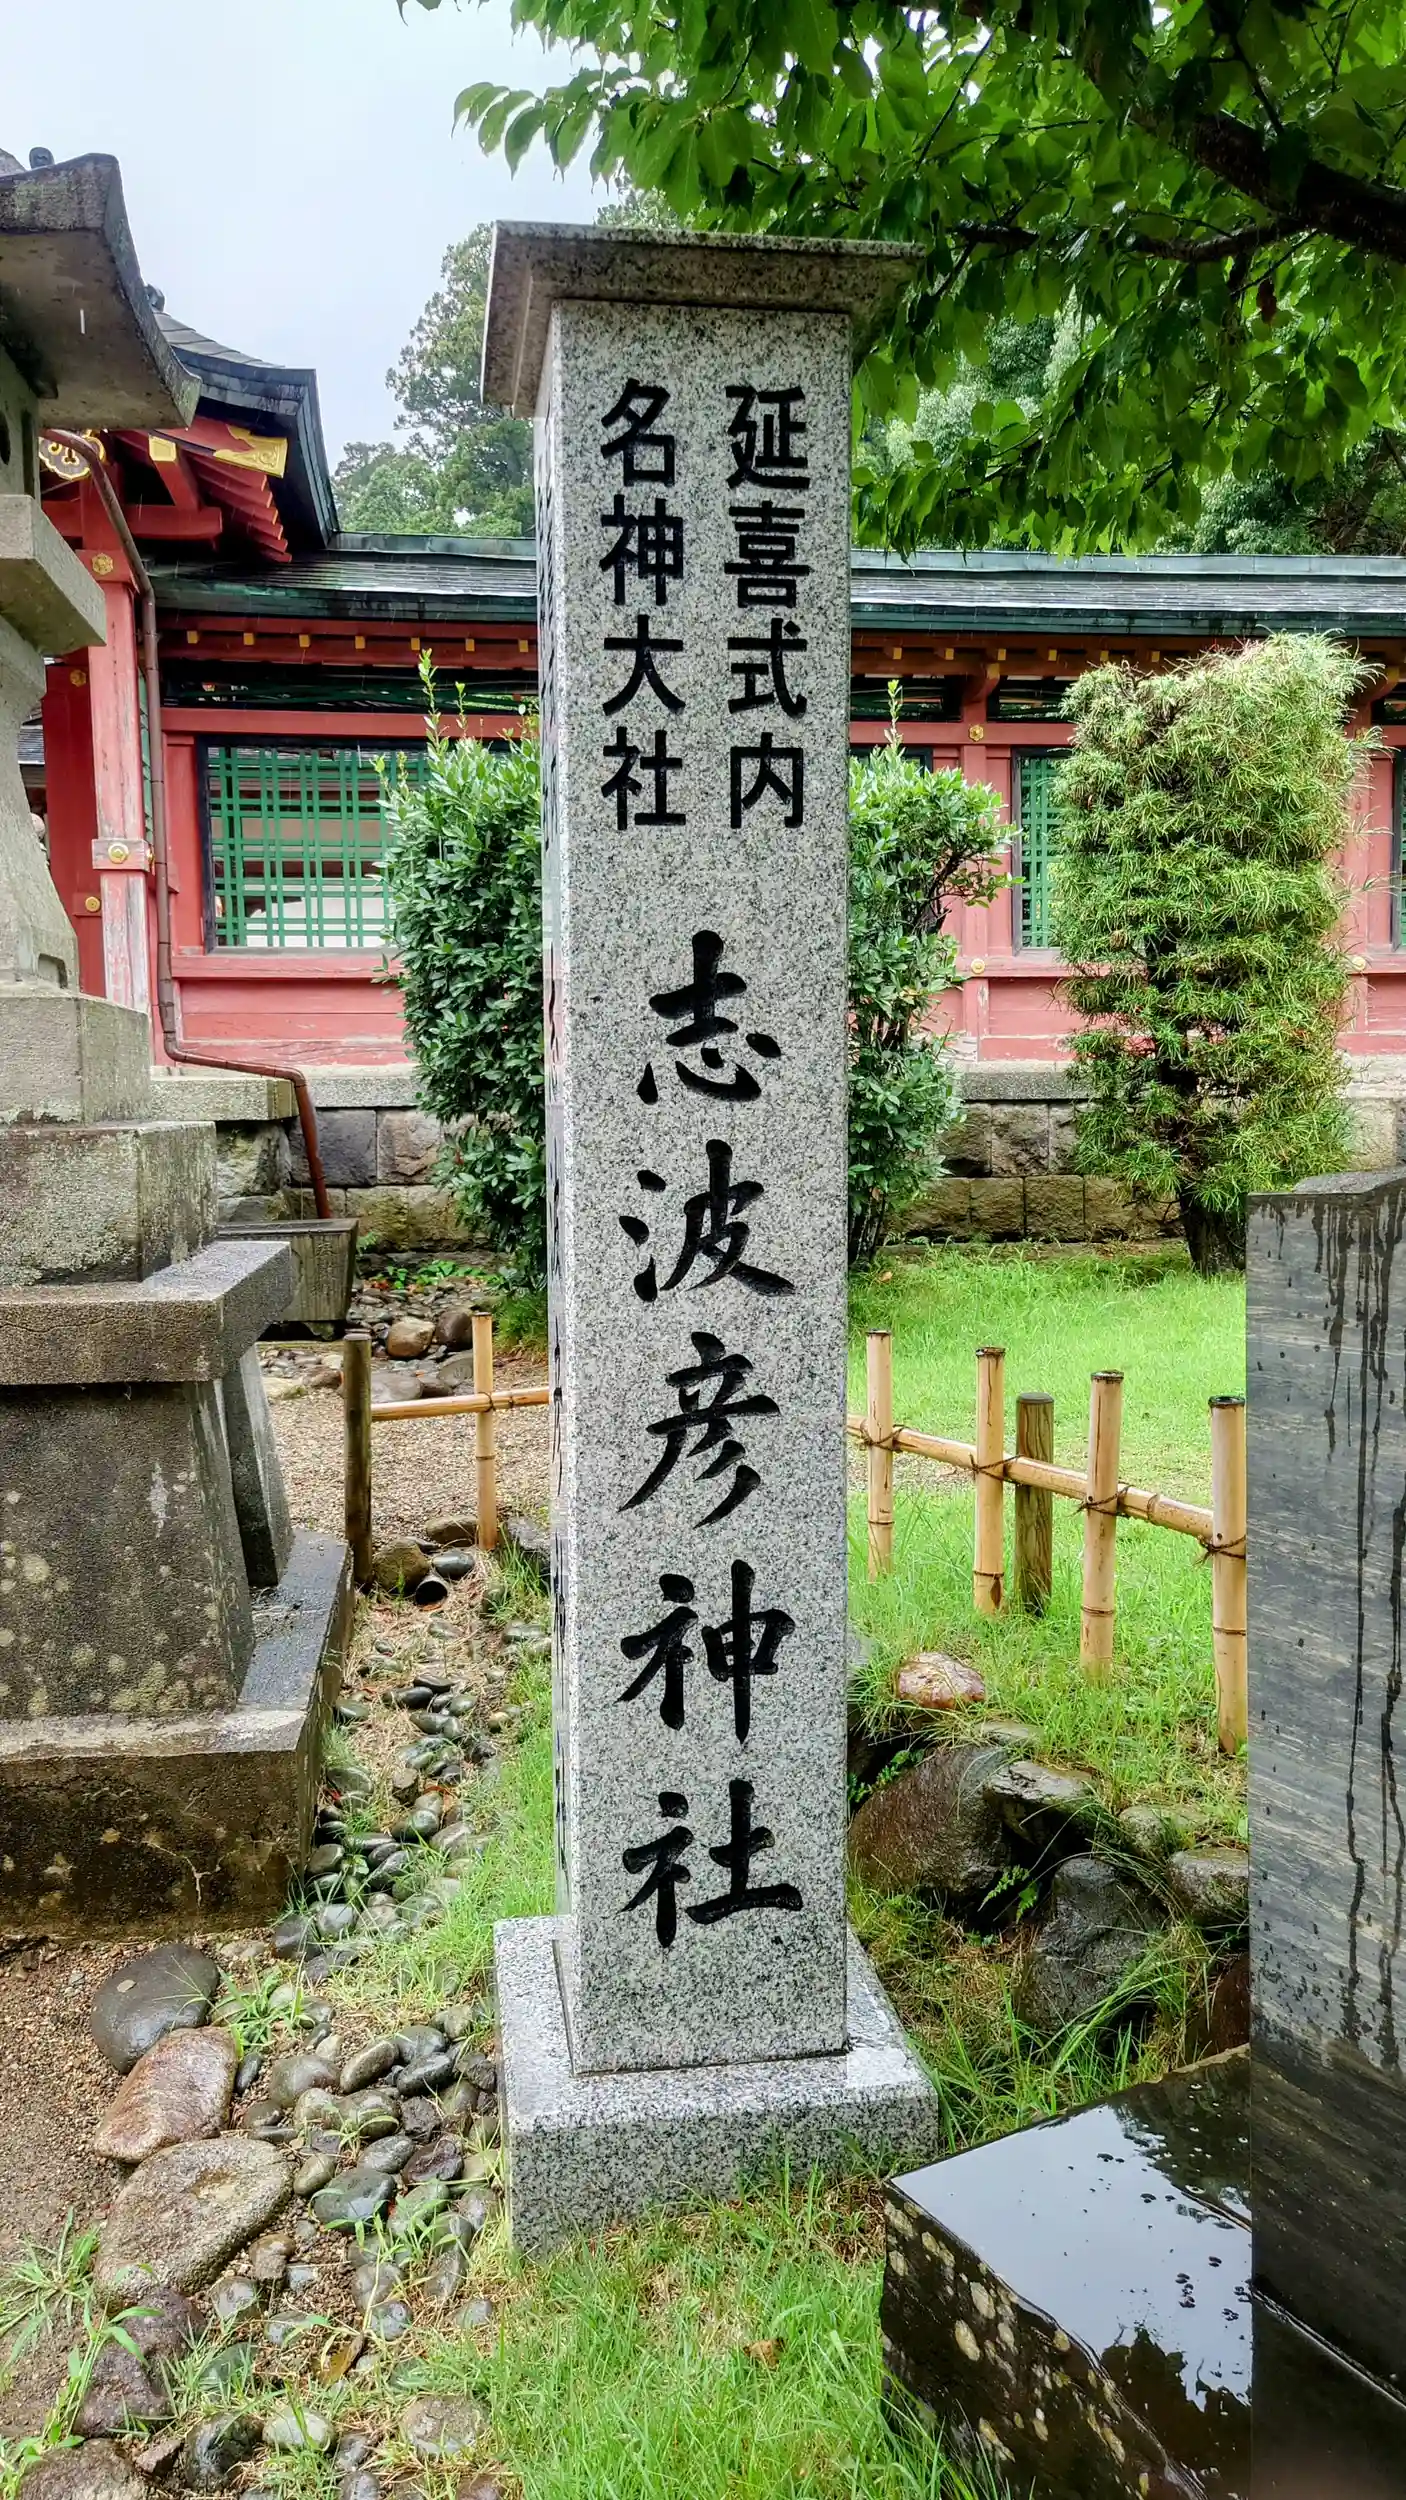 延喜式内
名神大社
志波彦神社